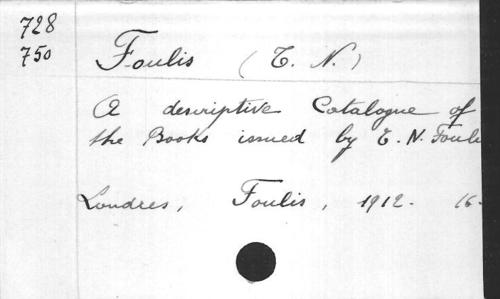 728
750
Foulis (T. N.)
A descriptive Catalogue of
the Books issued by T. N. Foul
Londres, Foulis, 1912. 16-